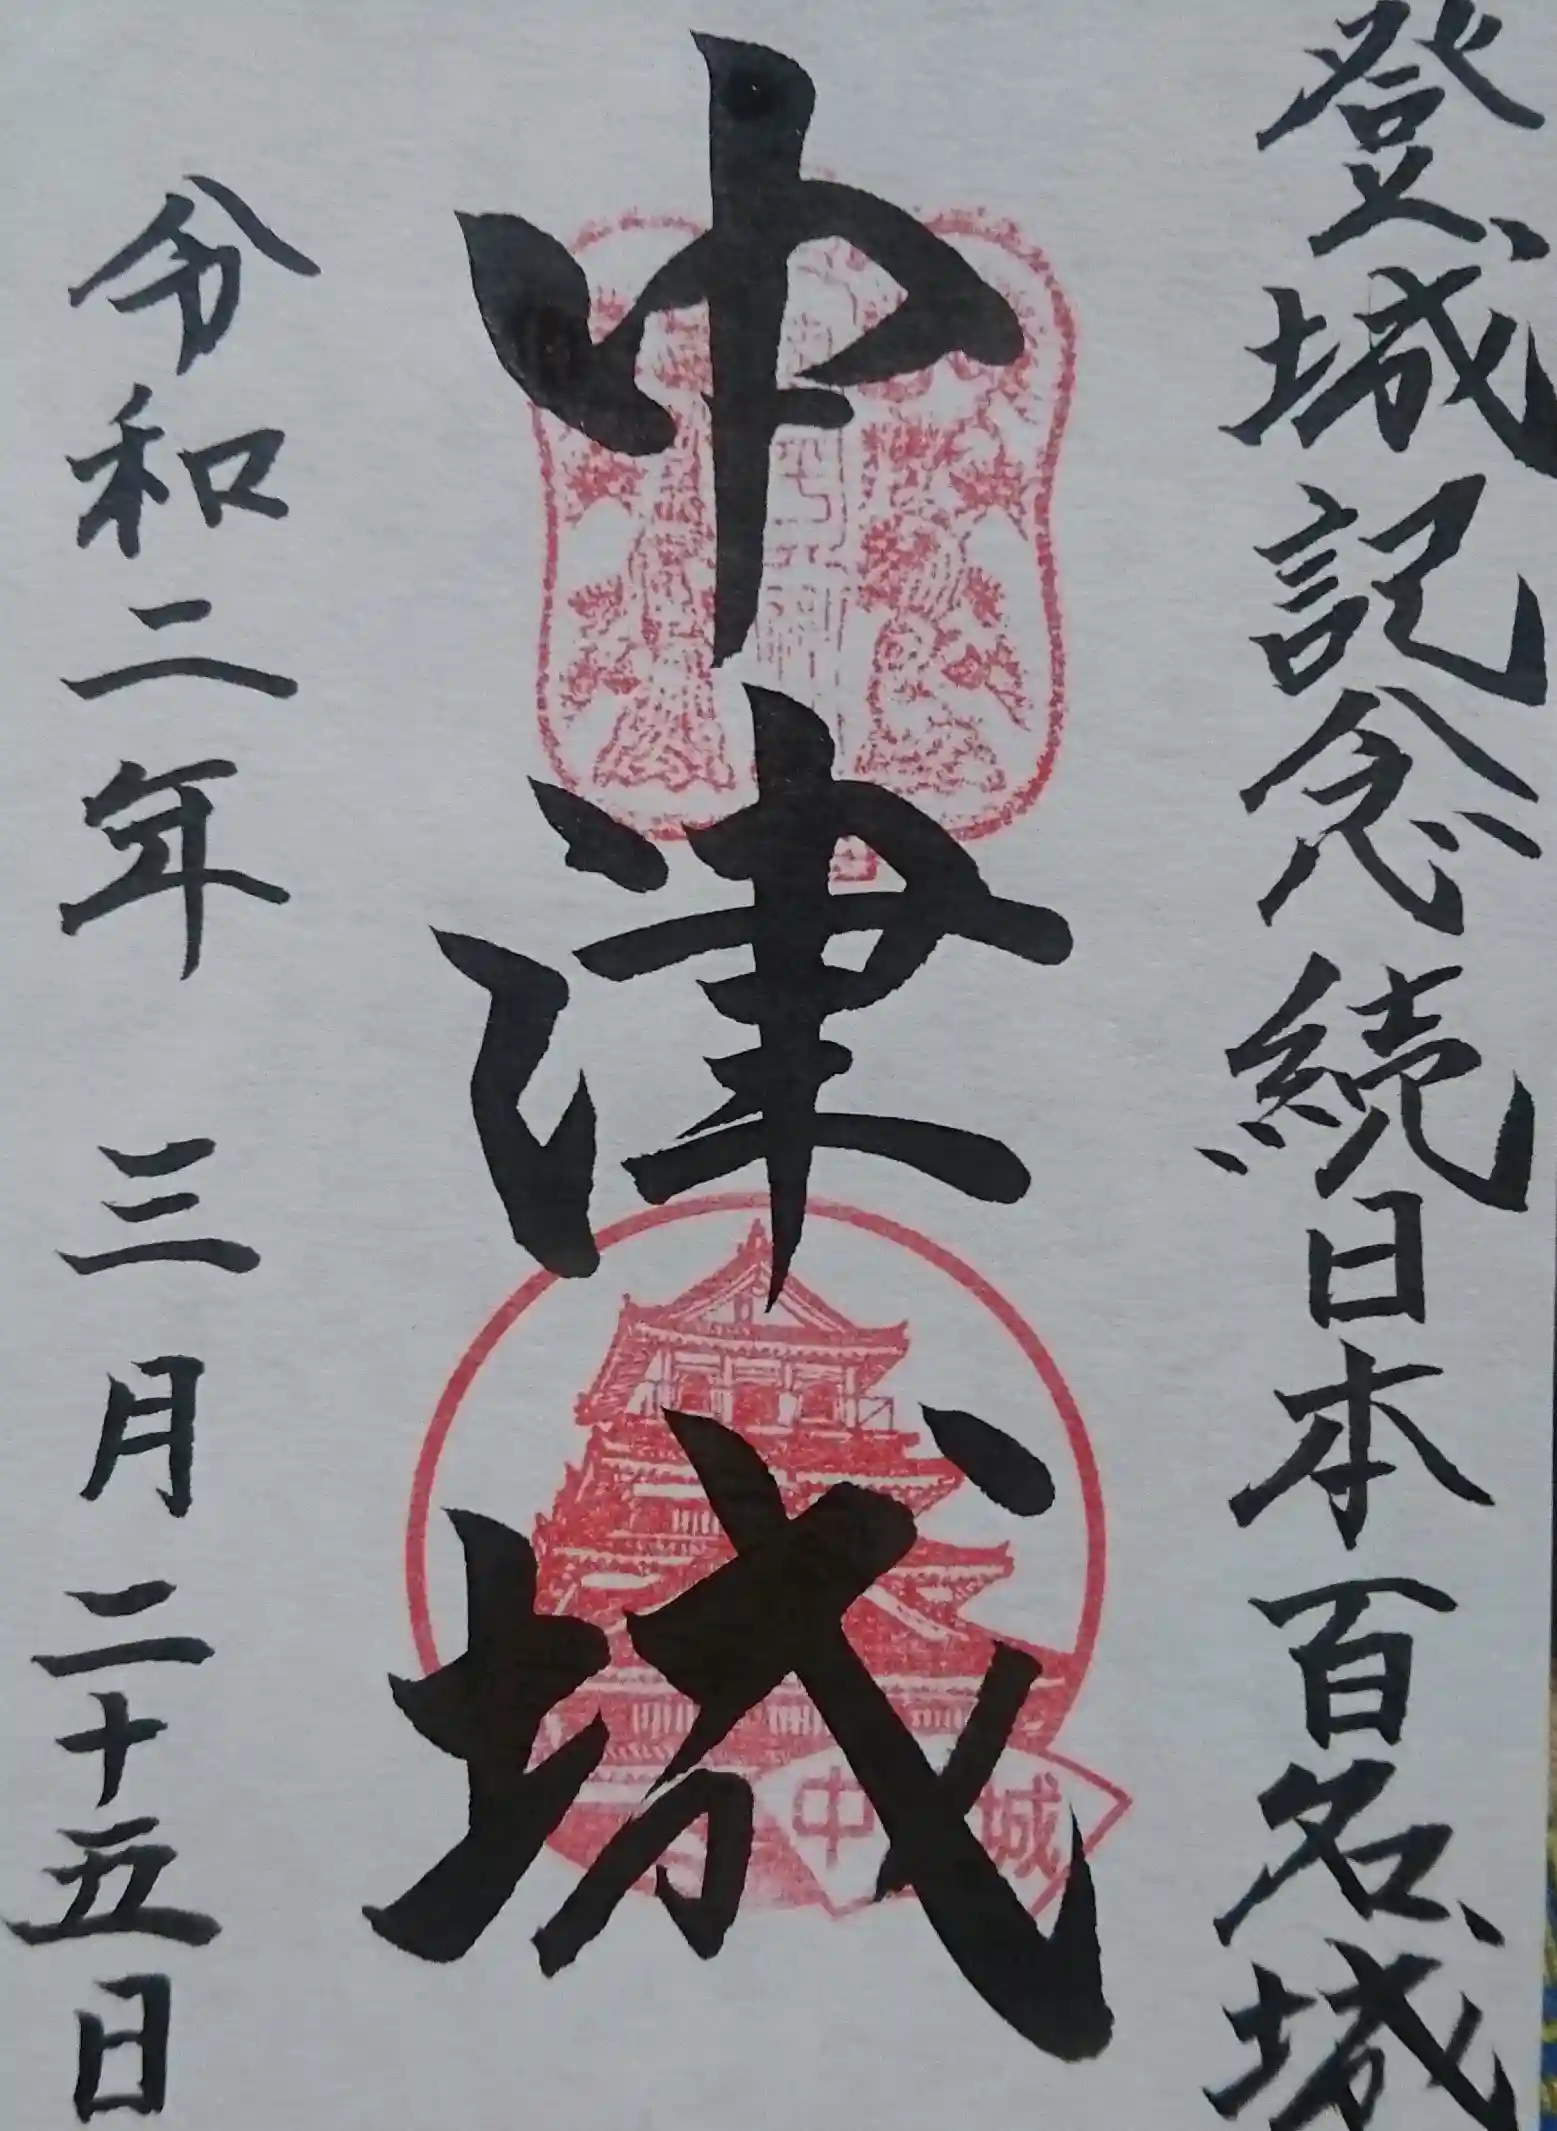 登城記念 続日本百名城
中津城
令和二年 三月 二十五日
中 城